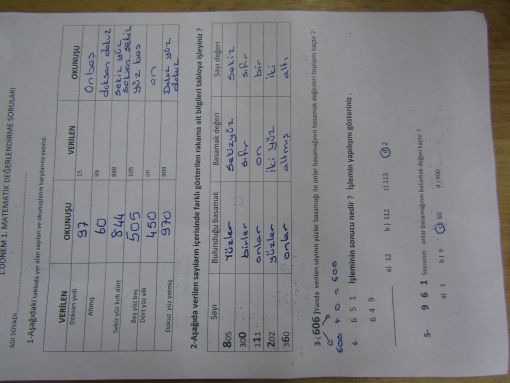 1.DÖNEM 1. MATEMATİK DEĞERLENDİRME SORULARI
ADI SOYADI:
1-Aşağıdaki tabloda yer alan sayıları ve okunuşlarını karşılarına yazınız.
VERİLEN OKUNUŞU VERİLEN OKUNUŞU
Doksan yedi 97 15 Onbeş
Altmış 60 99 doksan dokuz
Sekiz yüz kırk dört 844 888 Sekiz yüz seksen sekiz
Beş yüz beş 505 105 yüz beş
Dört yüz elli 450 on on
Dokuz yüz yetmiş 970 900 Dokuz yüz
2-Aşağıda verilen sayıların içerisinde farklı gösterilen rakama ait bilgileri tabloya işleyiniz ?
Sayı Bulunduğu basamak Basamak değeri Sayı değeri
805 Yüzler Sekizyüz Sekiz
300 birler sıfır sıfır
111 onlar on bir
202 yüzler iki yüz iki
360 onlar altmış altı
3-( 606 )Yanda verilen sayının yüzler basamağı ile onlar basamağının basamak değerleri toplamı kaçtır ?
600 + 0 = 600
4- 6 5 1 İşleminin sonucu nedir ? İşlemin yapılışını gösteriniz .
6 4 9
a) 12 b) 112 c) 113 d) 2
5- 9 6 1 Sayısının onlar basamağının basamak değeri kaçtır ?
a) 1 b) 6 c) 60 d) 900